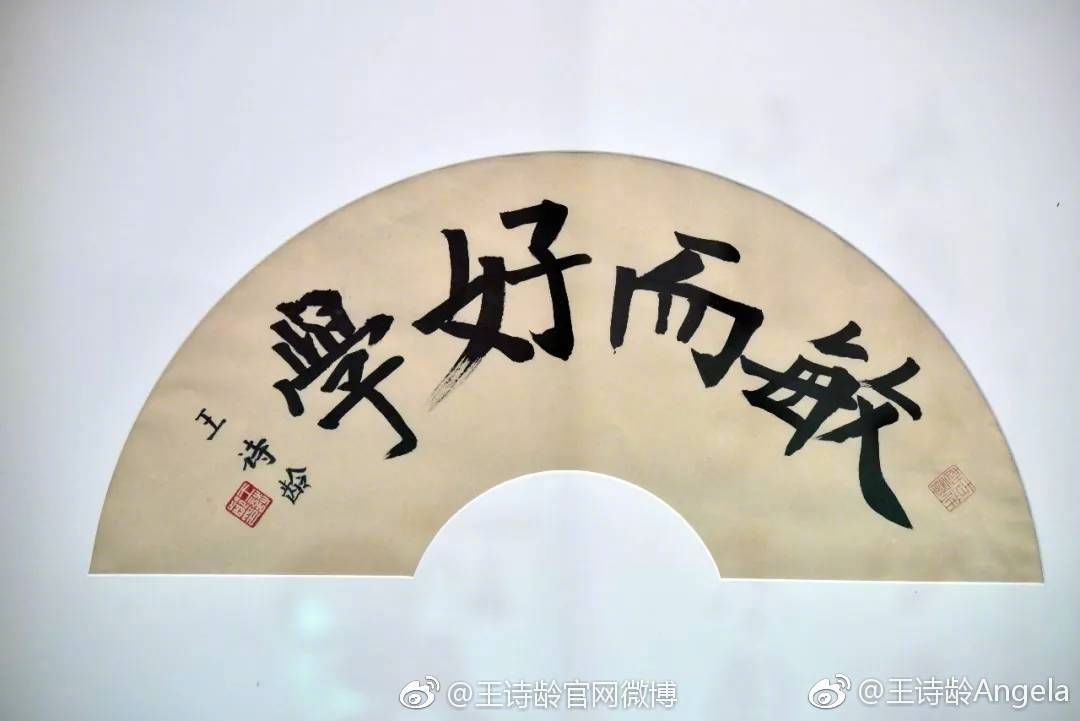 敏而好學
王诗龄
@王诗龄官网微博
@王诗龄Angela